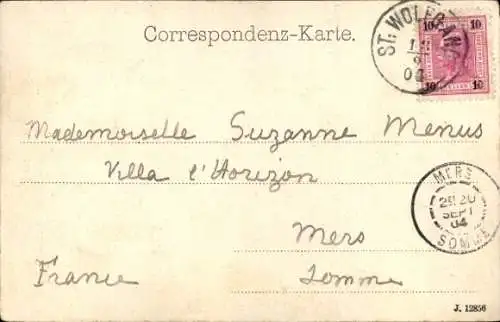 Correspondenz-Karte.
ST. WOLFGANG
10 10
10 10
Mademoiselle Suzanne Menus
Villa l'Horizon
MERS
SEPT
04
SOMME
Mers
France Somme
J. 12856